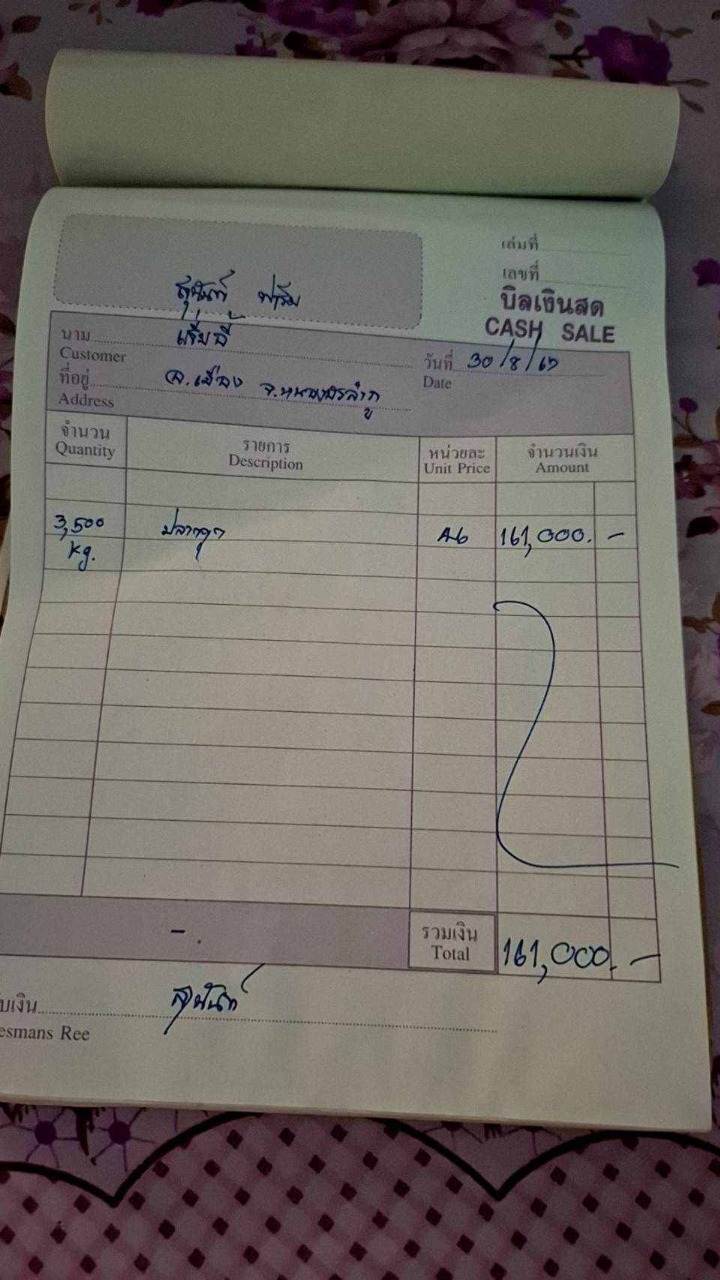 เล่มที่
เลขที่
บิลเงินสด
CASH SALE
สุนันท์ ฟาร์ม
นาม
Customer
วันที่ 30/8/67
Date
ที่อยู่ อ.เมือง จ.หนองบัวลำภู
Address
จำนวน รายการ หน่วยละ จำนวนเงิน
Quantity Description Unit Price Amount
3,500 ปลาดุก 46 161,000.-
kg.
-.
รวมเงิน
Total 161,000.-
บเงิน สุนันท์
esmans Ree